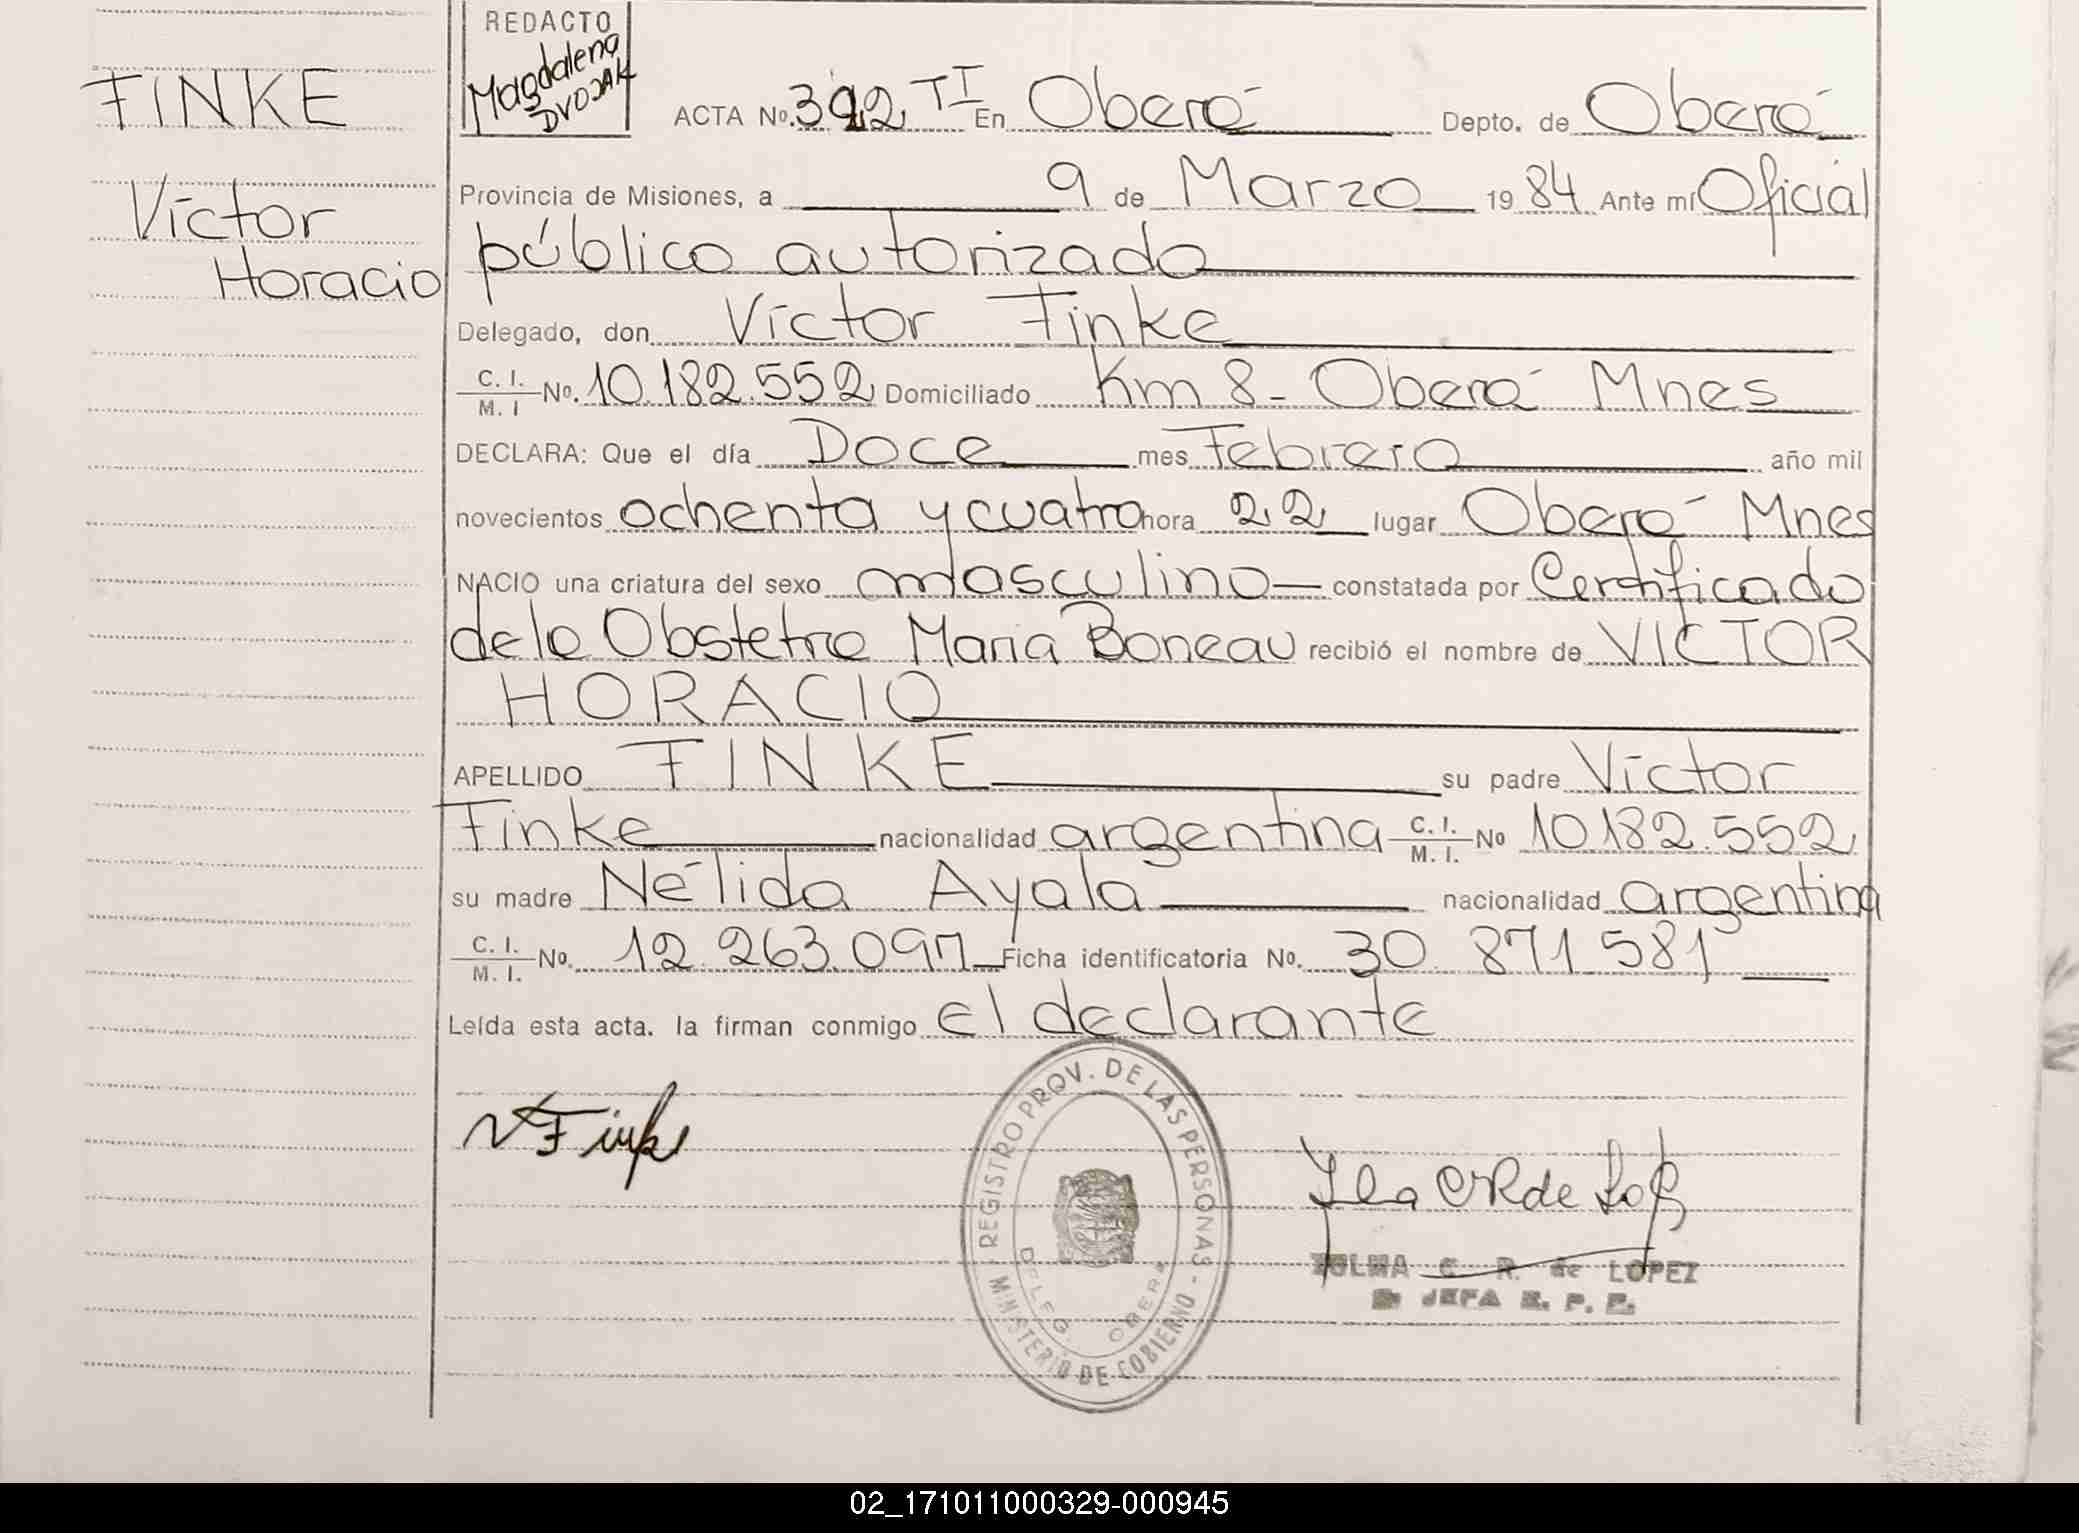 REDACTO
Magdalena
DVOJAK
FINKE
Víctor
Horacio
ACTA No. 392 TI En Oberá Depto. de Oberá
Provincia de Misiones, a 9 de Marzo 1984 Ante mí Oficial
público autorizado
Delegado, don Víctor Finke
C. I. / M. I No. 10.182.552 Domiciliado Km 8 - Oberá Mnes
DECLARA: Que el día Doce mes Febrero año mil
novecientos ochenta y cuatro hora 22 lugar Oberá Mnes
NACIO una criatura del sexo masculino — constatada por Certificado
de la Obstetra Maria Boneau recibió el nombre de VICTOR
HORACIO
APELLIDO FINKE su padre Víctor
Finke nacionalidad argentina C. I. / M. I. No 10182.552
su madre Nélida Ayala nacionalidad argentina
C. I. / M. I. No. 12.263.097 Ficha identificatoria No. 30.871.581
Leída esta acta. la firman conmigo el declarante
V Finke
REGISTRO PROV. DE LAS PERSONAS - MINISTERIO DE GOBIERNO -
DELEG. OBERA
C. R. de LOPEZ
JEFA R. P. P.
02_171011000329-000945